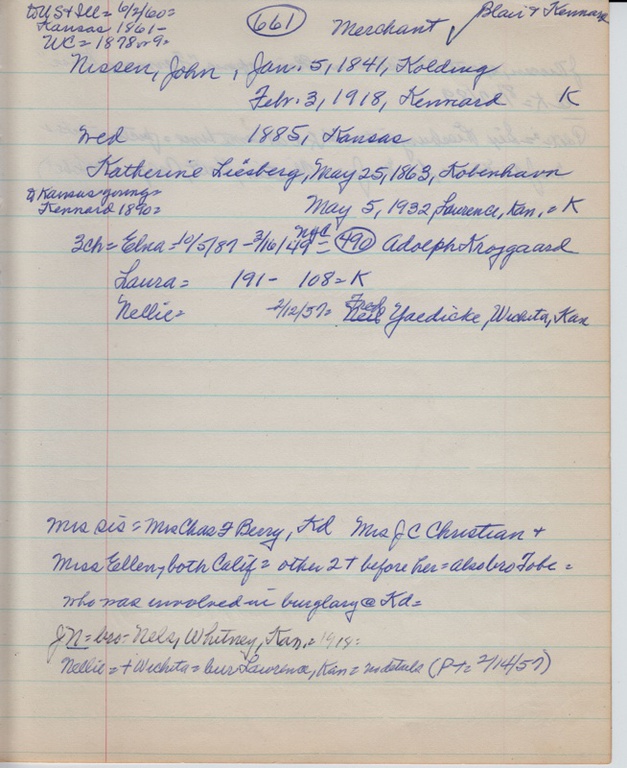 to US + Ill = 6/2/60 =
Kansas 1861 -
WC = 1878 or 9 =
661 Merchant Blair & Kennard
Nissen, John, Jan. 5, 1841, Kolding
Febr. 3, 1918, Kennard K
Wed 1885, Kansas
Katherine Liesberg, May 25, 1863, Kobenhavn
to Kansas young =
Kennard 1890 =
May 5, 1932, Laurence, Kan, = K
3ch = Elna = 10/5/87 - 3/16/49 NYC = 490 Adolph Krojgaard
Laura = 191- 108 = K
Nellie = -2/12/57 = Fred Yaedicke, Wichita, Kan
Mrs sis = Mrs Chas F Berry, Kd Mrs J C Christian +
Miss Ellen, both Calif = other 2 + before her = also bro Tobe =
who was involved in burglary @ Kd =
JN = bro = Nels, Whitney, Kan, = 1918 =
Nellie = + Wichita = bur Lawrence, Kan = no details (PT = 2/14/57)